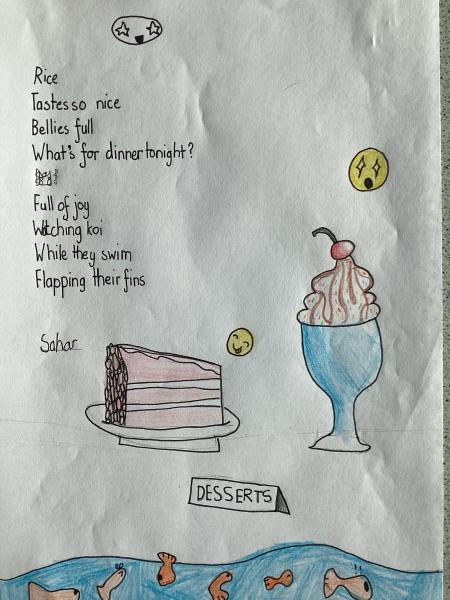 Rice
Tastes so nice
Bellies full
What's for dinner tonight?
Full of joy
Watching koi
While they swim
Flapping their fins
Sahar
DESSERTS